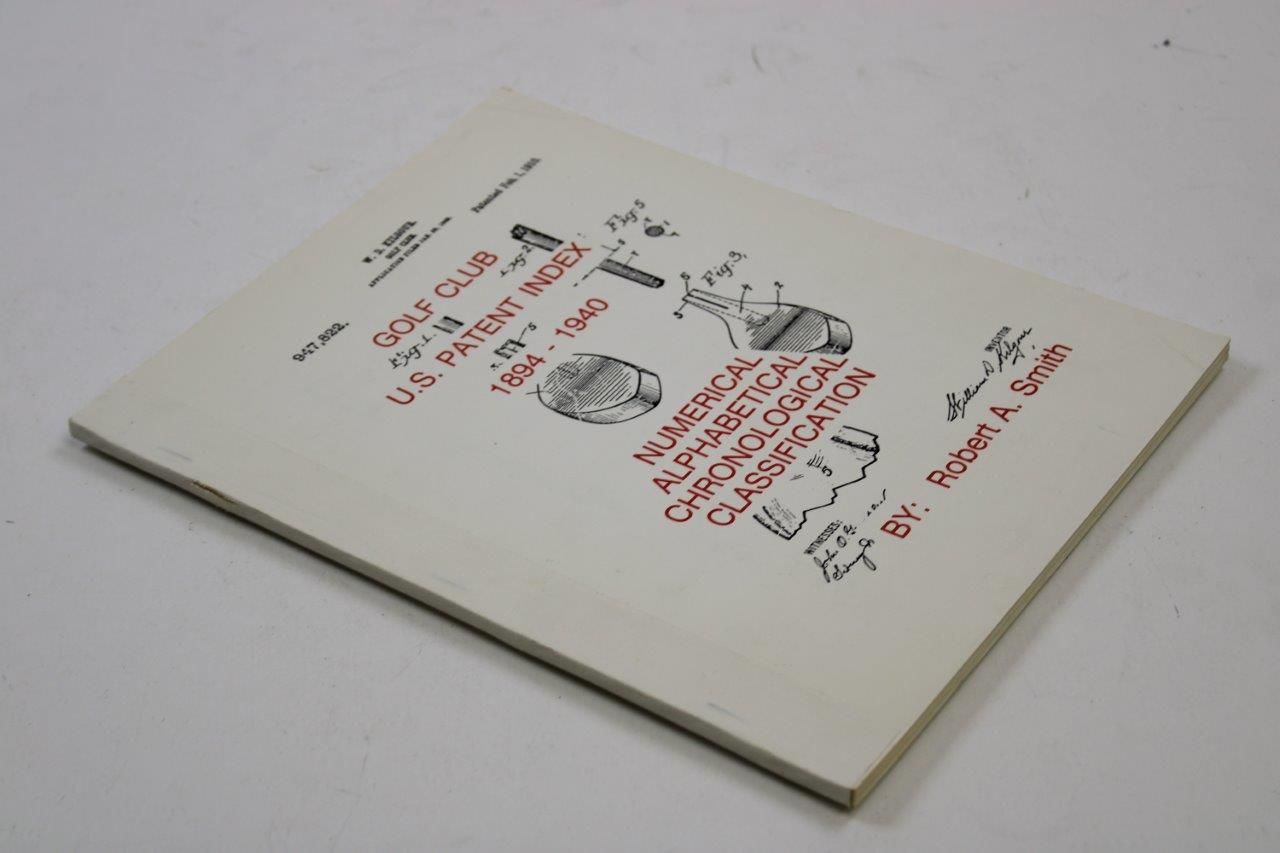 947,822.
W. D. KILGOUR.
GOLF CLUB
Patented Feb. 1, 1910.
GOLF CLUB
U.S. PATENT INDEX
1894 - 1940
Fig. 2
Fig. 5
Fig. 1.
Fig. 3,
5
4
2
3
NUMERICAL
ALPHABETICAL
CHRONOLOGICAL
CLASSIFICATION
5
WITNESSES:
INVENTOR
BY: Robert A. Smith